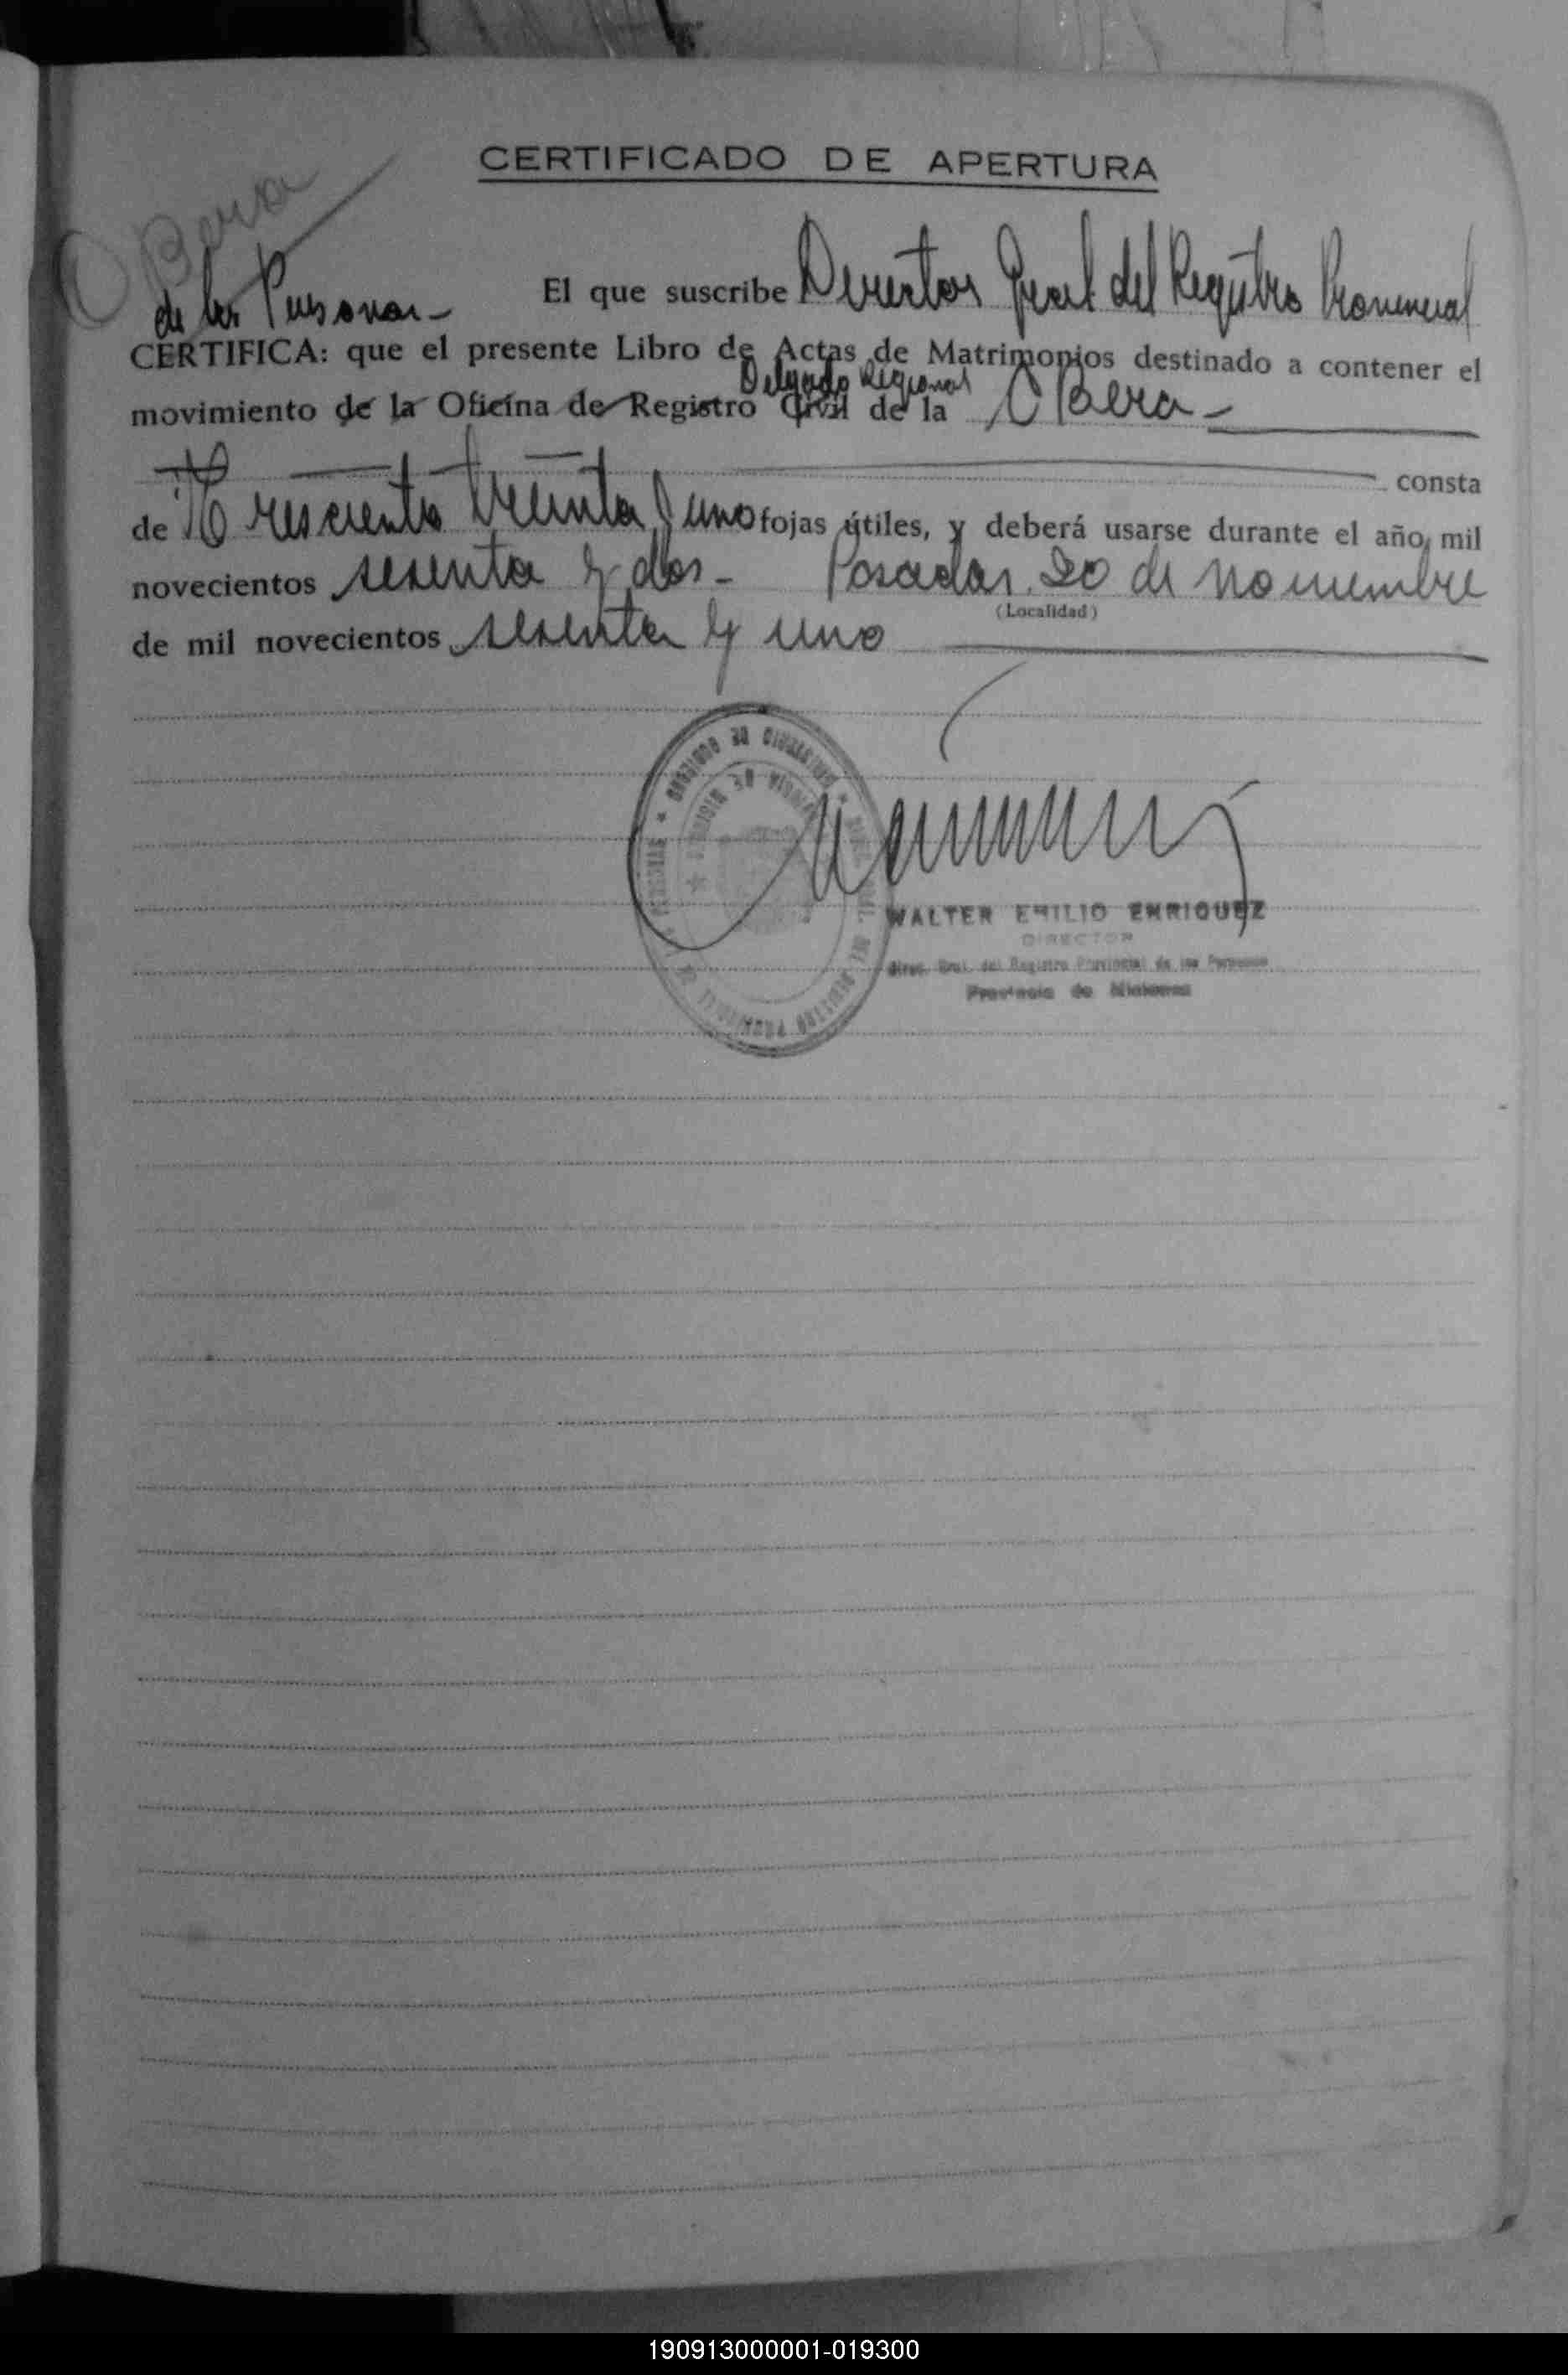 CERTIFICADO DE APERTURA
O Bera
El que suscribe Director Gral del Registro Provincial
de las Personas-
CERTIFICA: que el presente Libro de Actas de Matrimonios destinado a contener el
Delgado Regional
movimiento de la Oficina de Registro Civil de la O Bera-
consta
de Trescienta treinta y uno fojas útiles, y deberá usarse durante el año mil
novecientos sesenta y dos- Posadas, 20 de noviembre
(Localidad)
de mil novecientos sesenta y uno
MINISTERIO DE GOBIERNO
PROVINCIA DE MISIONES
WALTER EMILIO ENRIQUEZ
DIRECTOR
Direc. Gral. del Registro Provincial de las Personas
Provincia de Misiones
190913000001-019300